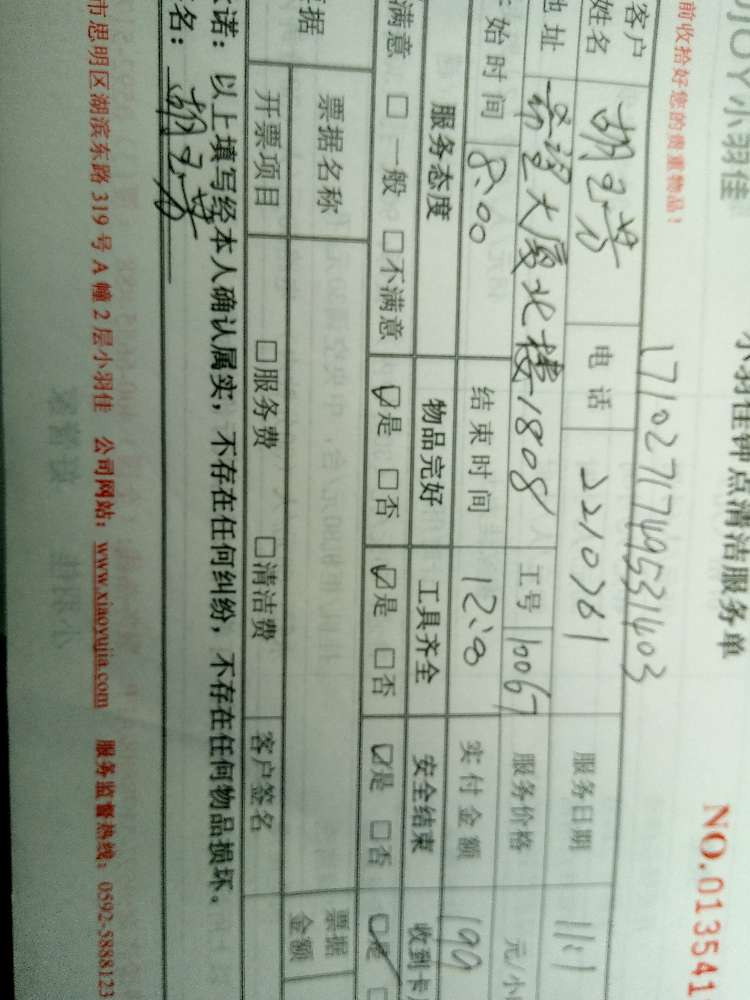 小羽佳钟点清洁服务单
JOY小羽佳 NO.013541
前收拾好您的贵重物品！
1710271749531403
客户姓名 电话 2210761 服务日期 11.1
地址 希望大厦北楼1808 工号 10067 服务价格 元/小
始时间 8:00 结束时间 12:00 实付金额 199
服务态度 物品完好 工具齐全 安全结束 收到卡
满意 □一般 □不满意 ☑是 □否 ☑是 □否 ☑是 □否 ☑是
据 票据名称 票据金额
开票项目 □服务费 □清洁费 客户签名
诺：以上填写经本人确认属实，不存在任何纠纷，不存在任何物品损坏。
名：
市思明区湖滨东路319号A幢2层小羽佳 公司网站：www.xiaoyujia.com 服务监督热线：0592-5888123